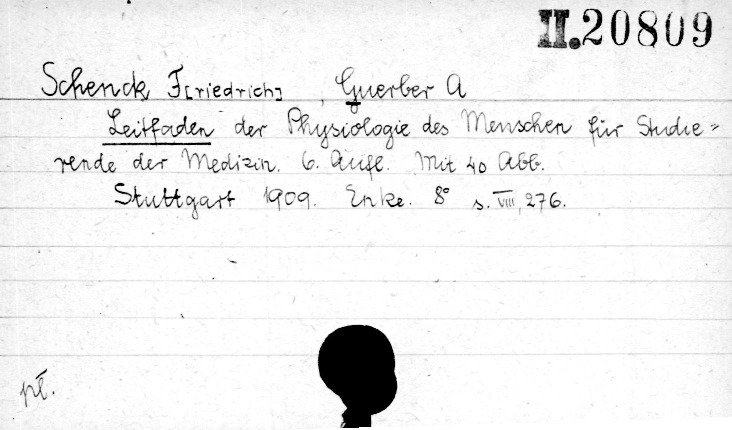 II.20809
Schenck F[riedrich], Guerber A
Leitfaden der Physiologie des Menschen für Studie=
rende der Medizin. 6. Aufl. Mit 40 Abb.
Stuttgart 1909. Enke. 8° s. VIII, 276.